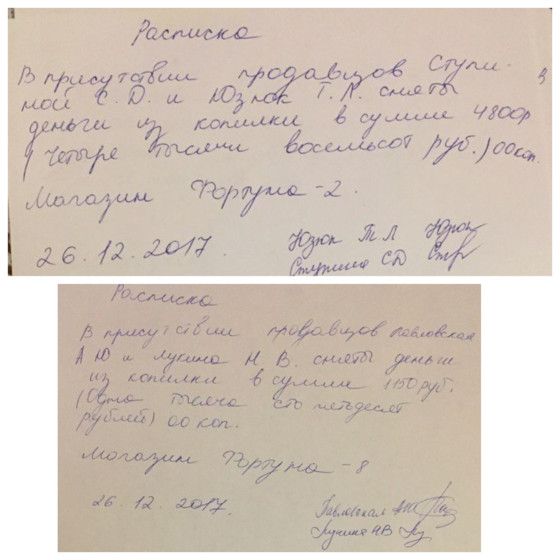 Расписка
В присутствии продавцов Ступи-
ной С. D. и Юзюк Т. Л. сняты
деньги из копилки в сумме 4800р
(Четыре тысячи восемьсот руб.) 00 коп.
Магазин Фортуна-2.
26.12.2017.
Юзюк Т Л Юзюк
Ступина СD
Расписка
В присутствии продавцов Павловская
А Ю и Лукина Н В. сняты деньги
из копилки в сумме 1150 руб.
(Одна тысяча сто петьдесят
рублей) 00 коп.
Магазин Фортуна -8
26.12.2017.
Павловская АЮ
Лукина НВ